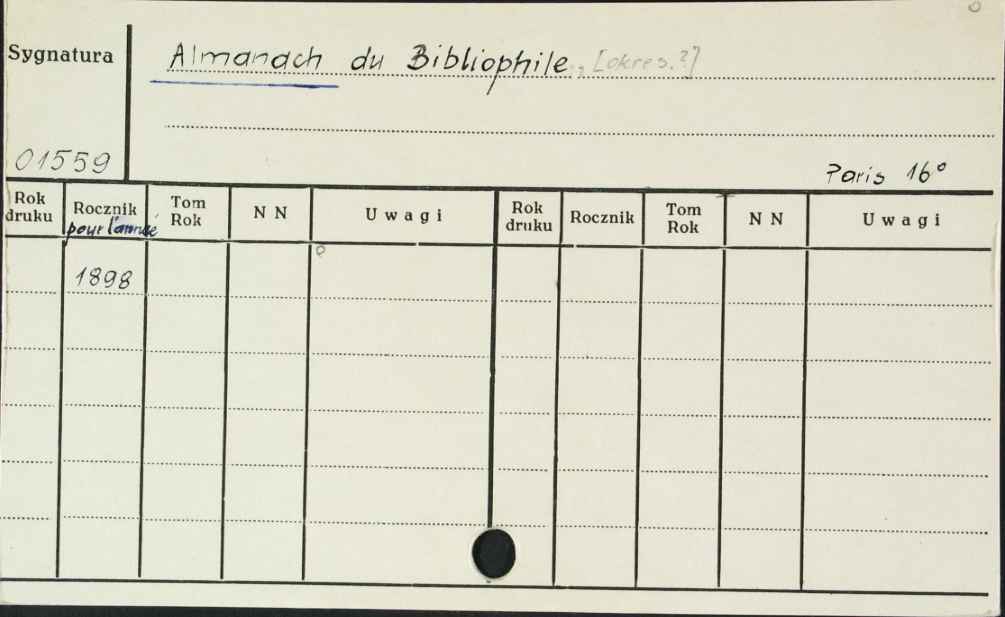 Sygnatura
Almanach du Bibliophile., [okres.?]
01559
Paris 16°
Rok druku Rocznik pour l'année Tom Rok N N Uwagi Rok druku Rocznik Tom Rok N N Uwagi
1898